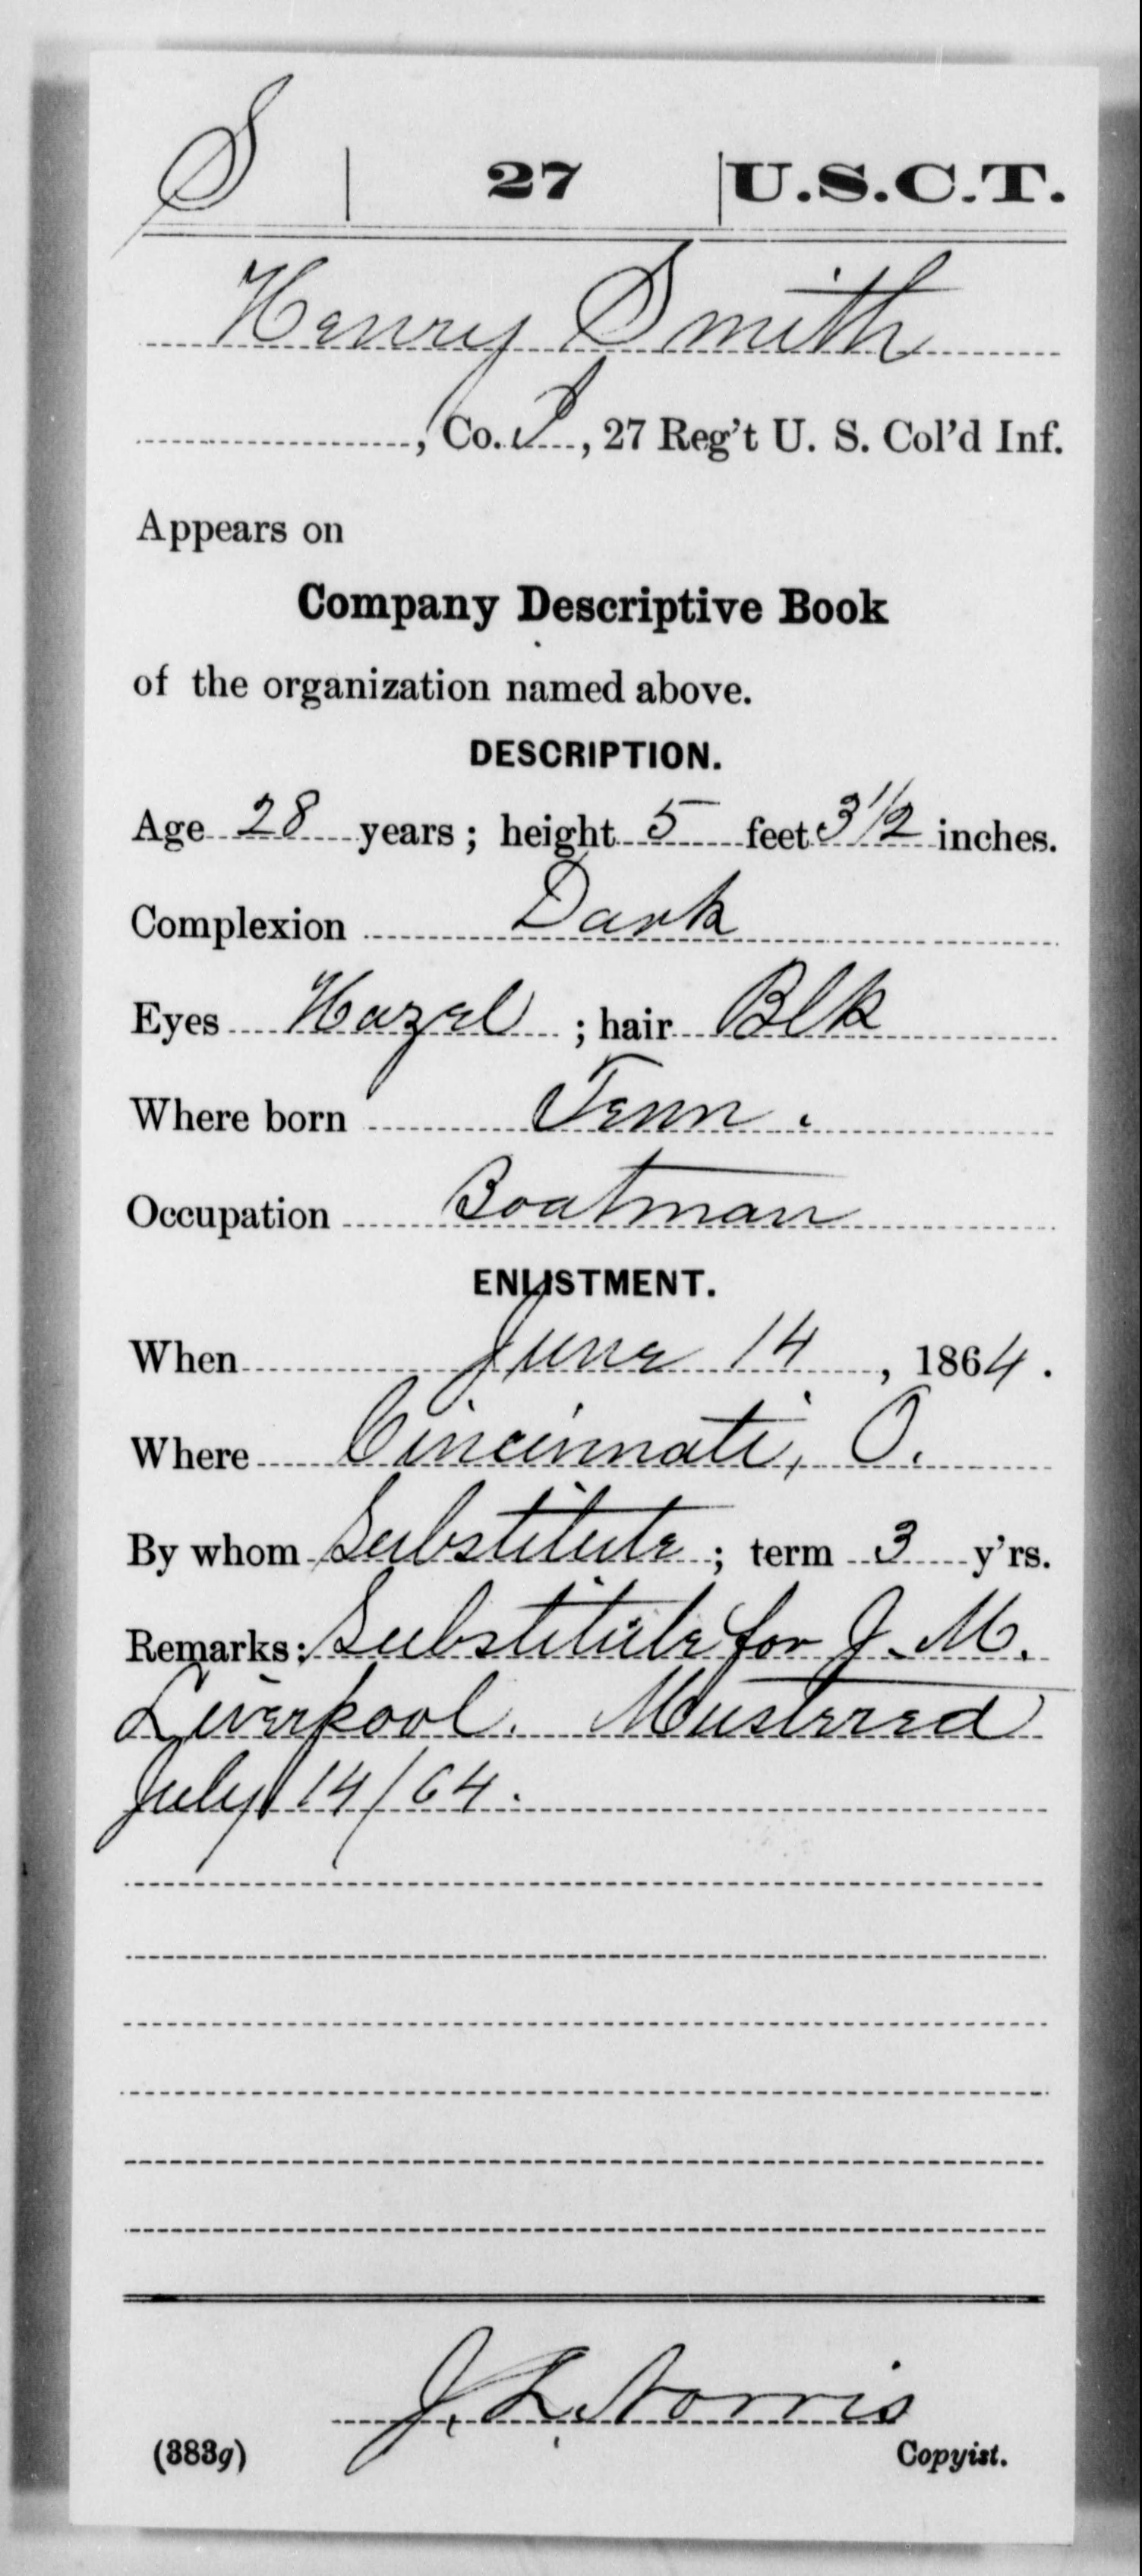 S | 27 | U.S.C.T.
Henry Smith
, Co. I, 27 Reg't U. S. Col'd Inf.
Appears on
Company Descriptive Book
of the organization named above.
DESCRIPTION.
Age 28 years; height 5 feet 3 1/2 inches.
Complexion Dark
Eyes Hazel; hair Blk
Where born Tenn.
Occupation Boatman
ENLISTMENT.
When June 14, 1864.
Where Cincinnati, O.
By whom Substitute; term 3 y'rs.
Remarks: Substitute for J. M.
Liverpool. Mustered
July 14/64.
J. L. Norris
(383g) Copyist.